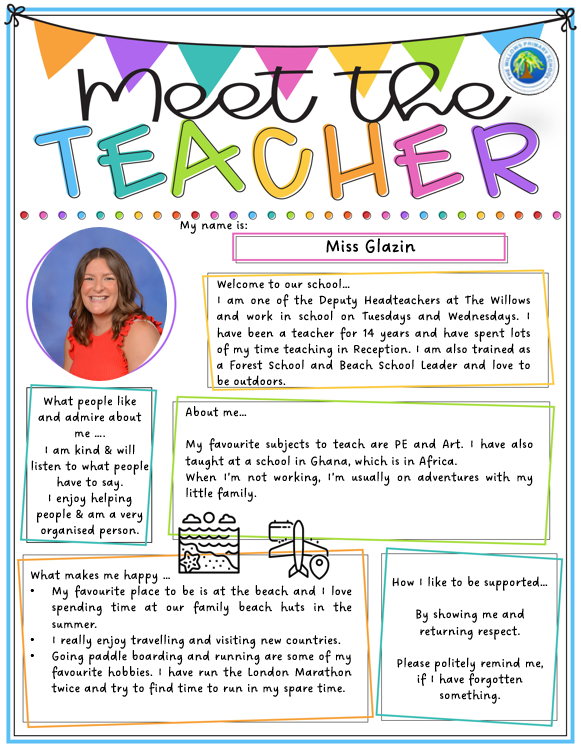 Meet the
TEACHER
THE WILLOWS PRIMARY SCHOOL
My name is:
Miss Glazin
Welcome to our school...
I am one of the Deputy Headteachers at The Willows
and work in school on Tuesdays and Wednesdays. I
have been a teacher for 14 years and have spent lots
of my time teaching in Reception. I am also trained as
a Forest School and Beach School Leader and love to
be outdoors.
What people like
and admire about
me ....
I am kind & will
listen to what people
have to say.
I enjoy helping
people & am a very
organised person.
About me...
My favourite subjects to teach are PE and Art. I have also
taught at a school in Ghana, which is in Africa.
When I'm not working, I'm usually on adventures with my
little family.
What makes me happy ...
• My favourite place to be is at the beach and I love
spending time at our family beach huts in the
summer.
• I really enjoy travelling and visiting new countries.
• Going paddle boarding and running are some of my
favourite hobbies. I have run the London Marathon
twice and try to find time to run in my spare time.
How I like to be supported...
By showing me and
returning respect.
Please politely remind me,
if I have forgotten
something.